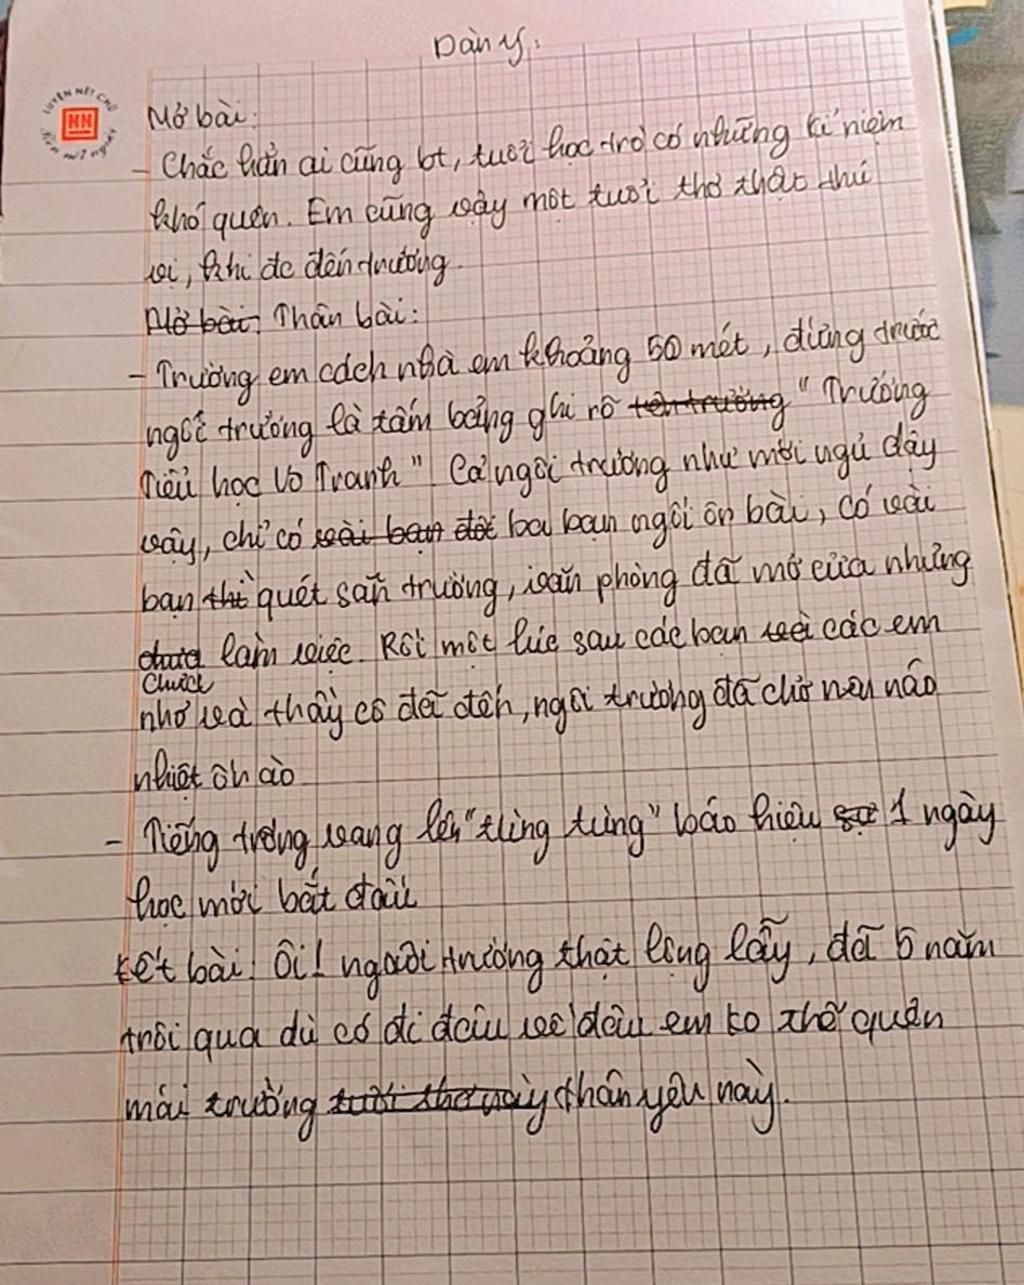 Dàn ý:
LUYỆN NÉT CHỮ
HN
Rèn nết người
Mở bài:
- Chắc hẳn ai cũng bt, tuổi học trò có những kỉ niệm
khó quên. Em cũng vậy một tuổi thơ thật thú
vị, khi đc đến trường.
Mở bài: Thân bài:
- Trường em cách nhà em khoảng 50 mét, đứng trước
ngôi trường là tấm bảng ghi rõ tên trường "Trường
Tiểu học Vô Tranh" Cả ngôi trường như mới ngủ dậy
vậy, chỉ có vài bạn đối ba bạn ngồi ôn bài, có vài
bạn thì quét sân trường, văn phòng đã mở cửa nhưng
chưa làm việc. Rồi một lúc sau các bạn với các em
chưa
nhỏ và thầy cô đã đến, ngôi trường đã chở nên náo
nhiệt ồn ào
- Tiếng trống vang lên "tùng tùng" báo hiệu sự 1 ngày
học mới bắt đầu
Kết bài: Ôi! ngôi trường thật lộng lẫy, đã 5 năm
trôi qua dù có đi đâu về đâu em ko thể quên
mái trường tuổi thơ này thân yêu này.